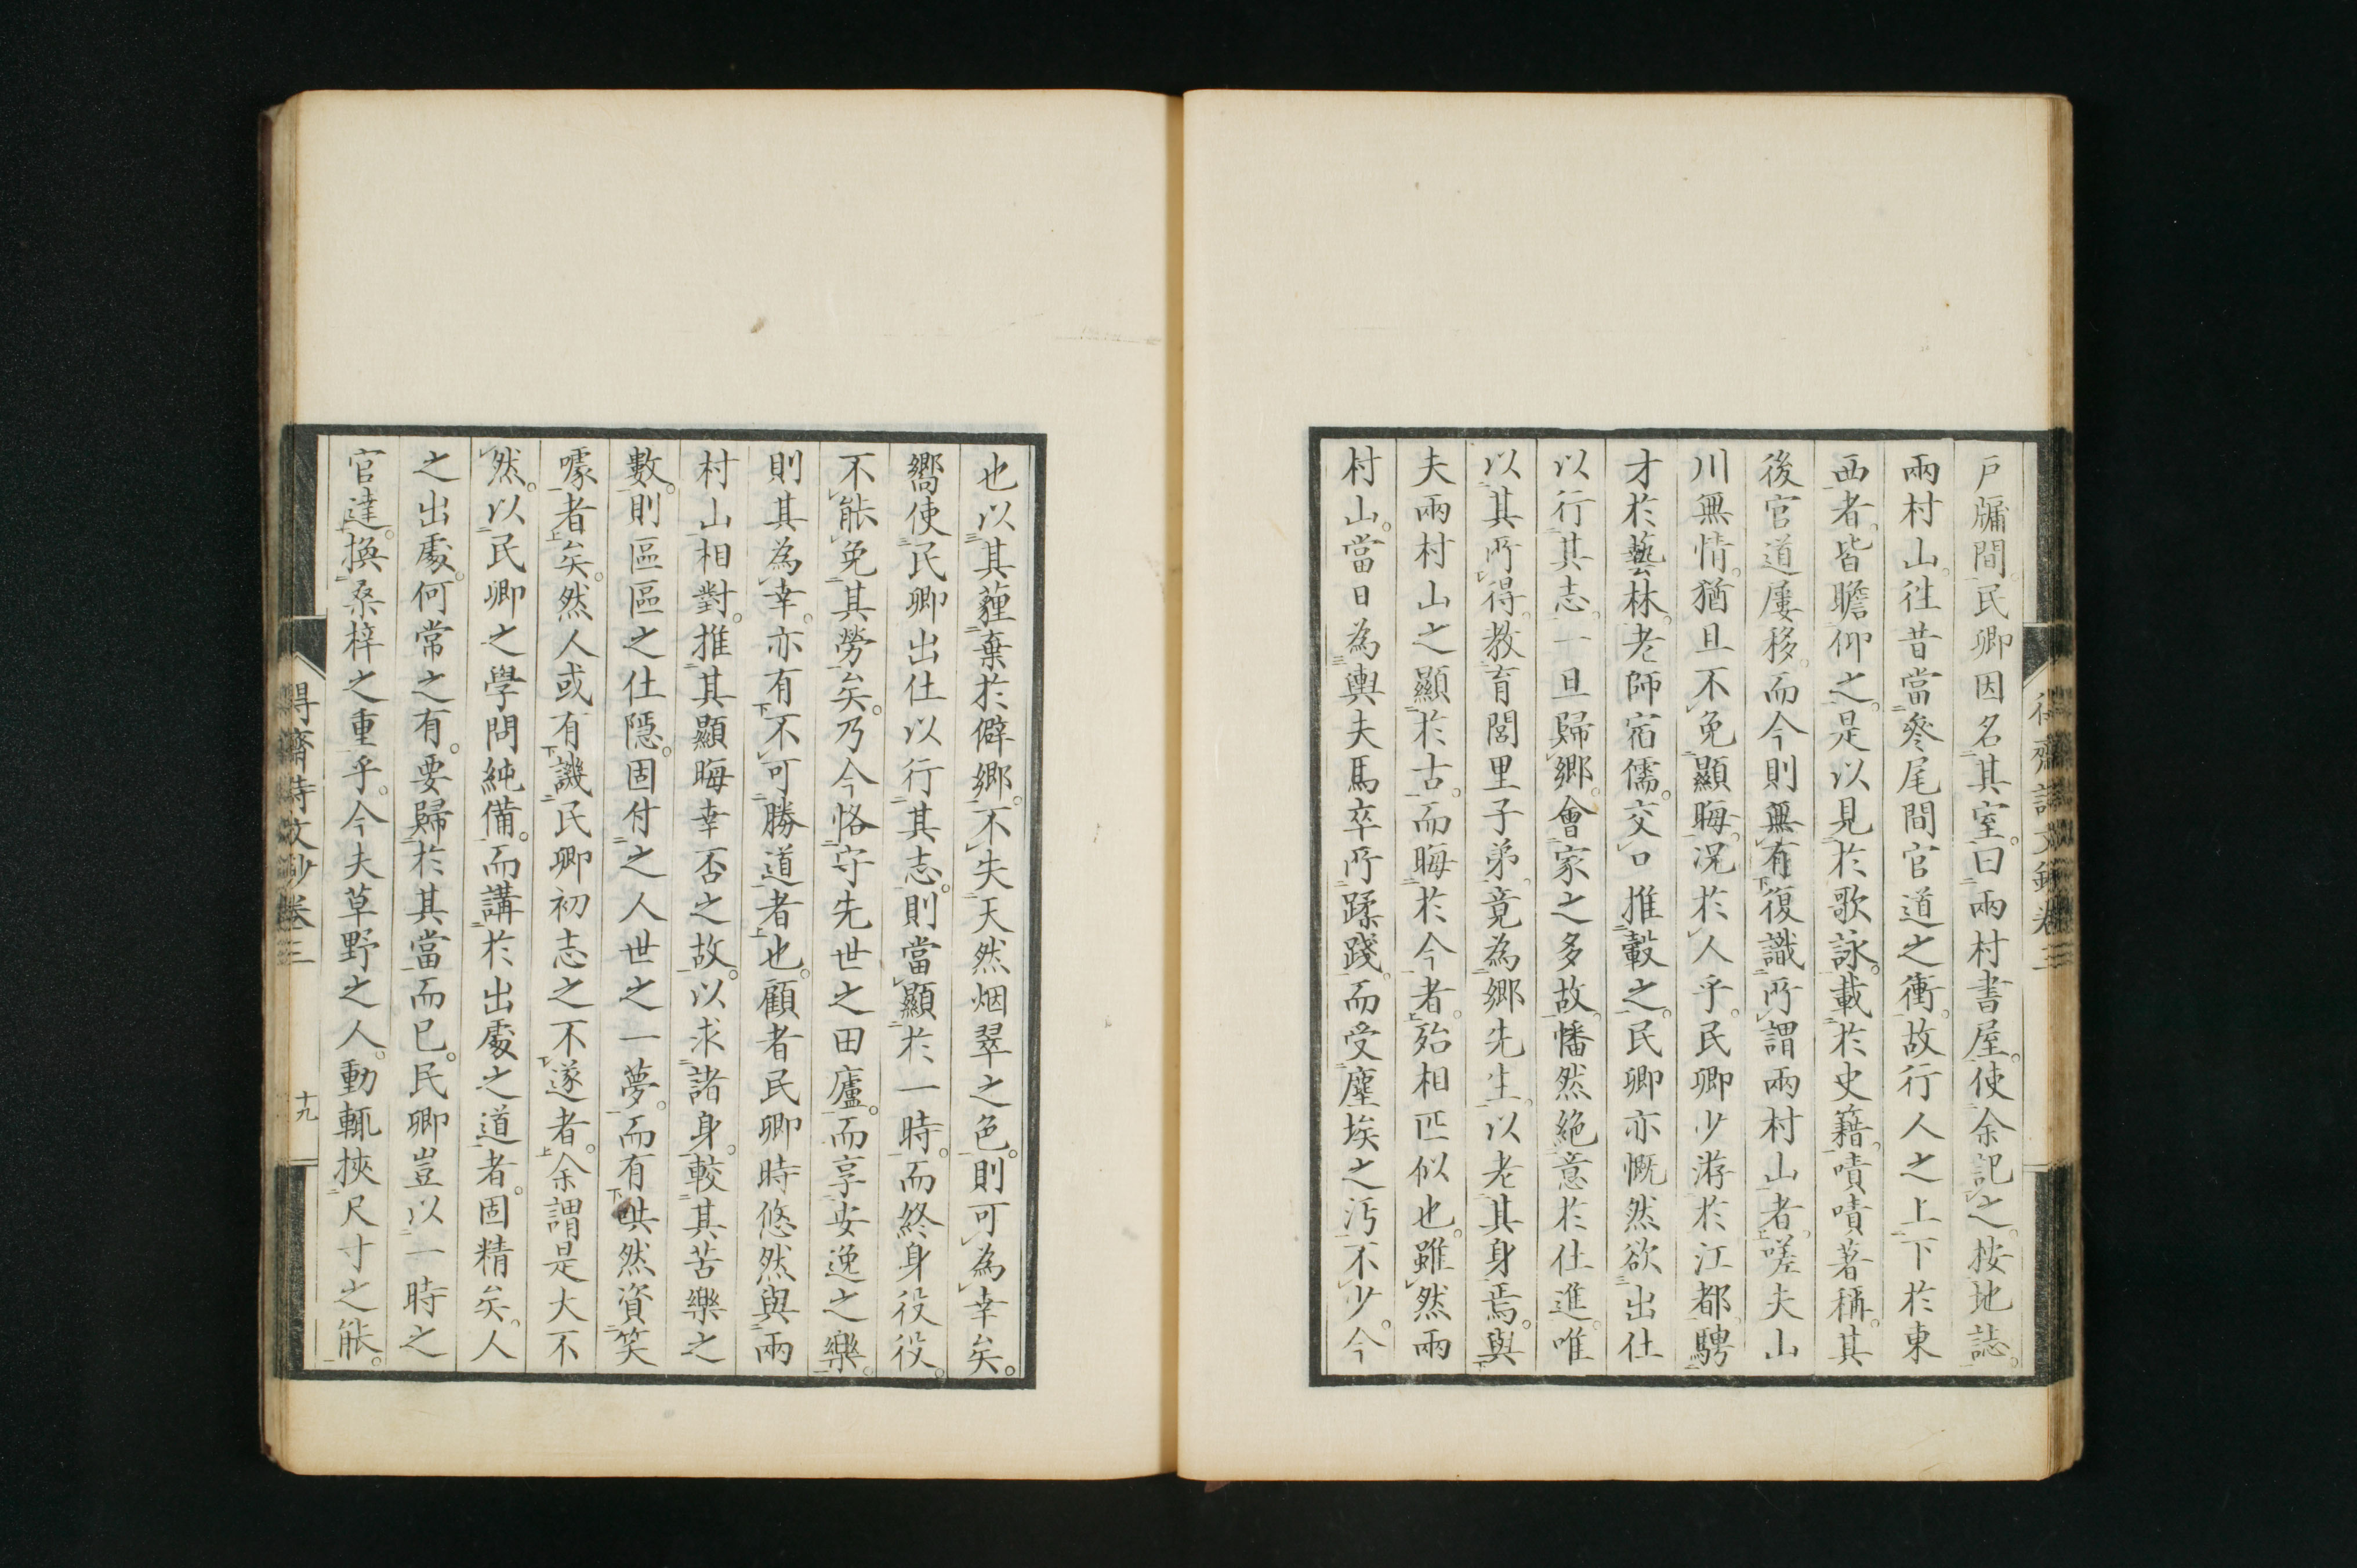 戶牖間。民卿因名其室。曰兩村書屋。使余記之。按地誌。
兩村山。往昔當參尾間官道之衝。故行人之上下於東
西者。皆瞻仰之。是以見於歌詠。載於史籍。嘖嘖著稱。其
後官道屢移。而今則無有復識所謂兩村山者。嗟夫山
川無情。猶且不免顯晦。況於人乎。民卿少游於江都。騁
才於藝林。老師宿儒。交口推轂之。民卿亦慨然欲出仕
以行其志。一旦歸鄉。會家之多故。幡然絕意於仕進。唯
以其所得。教育閭里子弟。竟為鄉先生。以老其身焉。與
夫兩村山之顯於古。而晦於今者。殆相匹似也。雖然兩
村山。當日為輿夫馬卒所蹂踐。而受塵埃之污不少。今
也以其薶棄於僻鄉。不失天然烟翠之色。則可為幸矣。
嚮使民卿出仕以行其志。則當顯於一時。而終身役役。
不能免其勞矣。乃今恪守先世之田廬。而享安逸之樂。
則其為幸。亦有不可勝道者也。顧者民卿時悠然與兩
村山相對。推其顯晦幸否之故。以求諸身。較其苦樂之
數。則區區之仕隱。固付之人世之一夢。而有哄然資笑
噱者矣。然人或有譏民卿初志之不遂者。余謂是大不
然。以民卿之學問純備。而講於出處之道者。固精矣。人
之出處。何常之有。要歸於其當而已。民卿豈以一時之
官達。換桑梓之重乎。今夫草野之人。動輒挾尺寸之能。
得齋詩文鈔卷三
十九